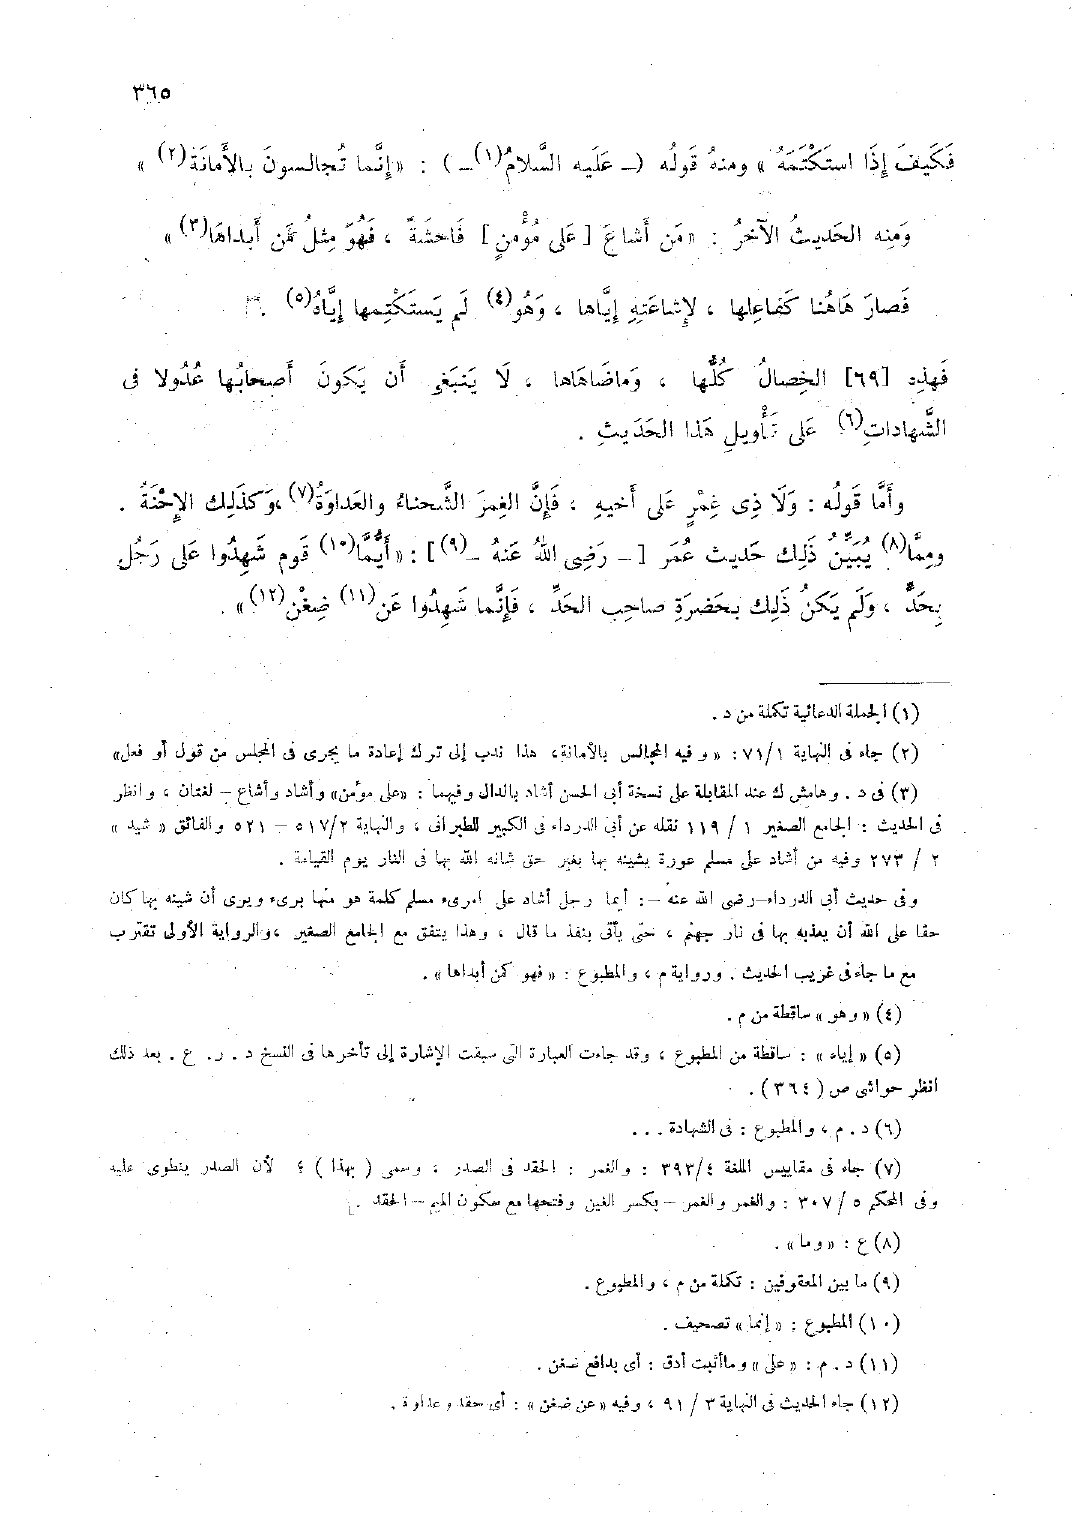 ٣٦٥
فَكَيفَ إِذَا استَكْتَمَهُ » ومنهُ قَولُه (ـ عَلَيه السَّلامُ(١)ـ) : «إِنَّما تُجالسونَ بالأَمانَةِ(٢) »
وَمِنه الحَديثُ الآخرُ : «مَن أَشاعَ [عَلى مُؤْمنٍ] فَاحشَةً ، فَهُوَ مِثلُ مَن أَبداهَا(٣) »
فَصارَ هَاهُنا كَفاعِلها ، لإِشاعَتِهِ إيَّاها ، وَهُو(٤) لَم يَستَكْتِمها إِيَّاهُ(٥) .
فَهذِه [٦٩] الخِصالُ كُلُّها ، وَماضَاهَاها ، لَا يَنبَغِي أَن يَكونَ أَصحابُها عُدُولا فى
الشَّهادات(٦) عَلى تَأْويلِ هَذا الحَدَيثِ .
وأَمَّا قَولُه : وَلَا ذِى غِمْرٍ عَلى أَخيهِ ، فَإِنَّ الغِمرَ الشَّحناءُ والعَداوَةُ(٧) ،وَكذَلِك الإِحْنَةُ .
ومِمَّا(٨) يُبَيِّنُ ذَلِك حَديث عُمَر [ـ رَضِى اللهُ عَنهُ ـ(٩)] : «أَيُّما(١٠) قَوم شَهِدُوا عَلى رَجُلٍ
بِحَدٍّ ، وَلَم يَكنُ ذَلِك بحَضرَةِ صاحِب الحَدِّ ، فَإِنَّما شَهِدُوا عَن(١١) ضِغْن(١٢)» .
(١) الجملة الدعائية تكملة من د .
(٢) جاء فى النهاية ٧١/١: «وفيه المجالس بالأمانة، هذا ندب إلى ترك إعادة ما يجرى فى المجلس من قول أو فعل»
(٣) فى د . وهامش ك عند المقابلة على نسخة أبى الحسن أشاد بالدال وفيهما : «على مؤمن» وأشاد وأشاع – لغتان ، وانظر
فى الحديث : الجامع الصغير ١ / ١١٩ نقله عن أبى الدرداء فى الكبير للطبرانى ، والنهاية ٥١٧/٢ – ٥٢١ والفائق « شيد »
٢ / ٢٧٣ وفيه من أشاد على مسلم عورة يشينه بها بغير حق شانه الله بها فى النار يوم القيامة .
وفى حديث أبى الدرداء–رضى الله عنه –: أيما رجل أشاد على امرىء مسلم كلمة هو منها برىء ويرى أن شينه بها كان
حقا على الله أن يعذبه بها فى نار جهنم ، حتى يأتى بنفذ ما قال ، وهذا يتفق مع الجامع الصغير ،والرواية الأولى تقترب
مع ما جاء فى غريب الحديث . ورواية م ، والمطبوع : «فهو كمن أبداها» .
(٤) «وهو» ساقطة من م .
(٥) «إياه» : ساقطة من المطبوع ، وقد جاءت العبارة التى سبقت الإشارة إلى تأخرها فى النسخ د . ر . ع . بعد ذلك
انظر حواشى ص (٣٦٤) .
(٦) د . م ، والمطبوع : فى الشهادة . . .
(٧) جاء فى مقاييس اللغة ٣٩٣/٤ : والغمر : الحقد فى الصدر ، وسمى (بهذا) ؛ لأن الصدر ينطوى عليه
وفى المحكم ٥ / ٣٠٧ : والغمر والغمر – بكسر الغين وفتحها مع سكون الميم – الحقد .
(٨) ع : «وما» .
(٩) ما بين المعقوفين : تكملة من م ، والمطبوع .
(١٠) المطبوع : «إنما» تصحيف .
(١١) د . م : «على» وماأثبت أدق : أى بدافع ضغن .
(١٢) جاء الحديث فى النهاية ٣ / ٩١ ، وفيه «عن ضغن» : أى حقد وعداوة .